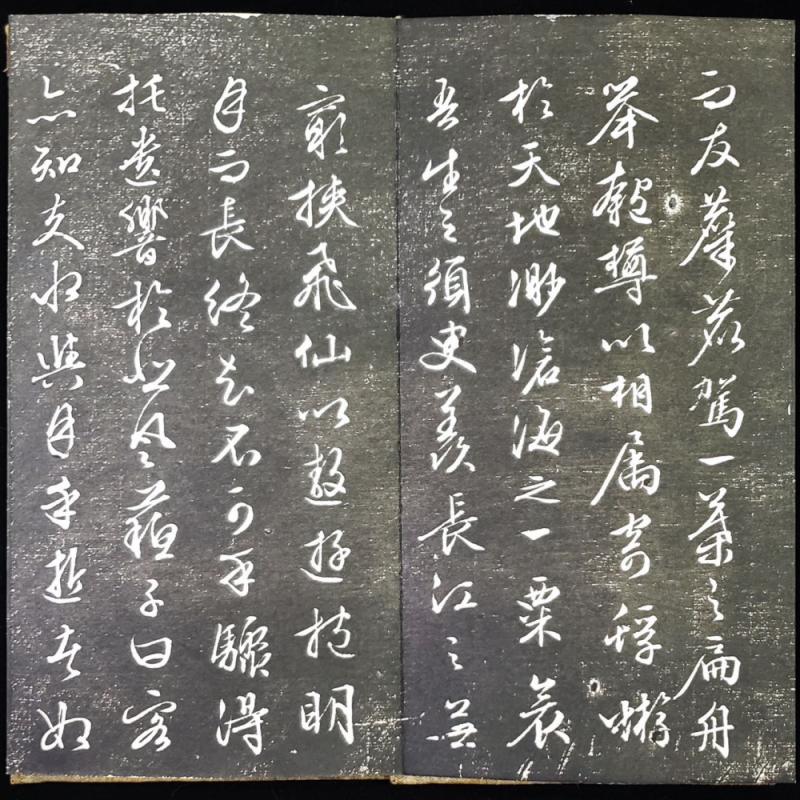 而友麋鹿駕一葉之扁舟
舉匏樽以相属寄蜉蝣
於天地渺滄海之一粟哀
吾生之須臾羨長江之無
窮挾飛仙以遨遊抱明
月而長終知不可乎驟得
托遺響於悲風蘇子曰客
亦知夫水與月乎逝者如